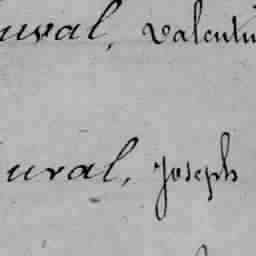 uval, Valentin
ural, Joseph